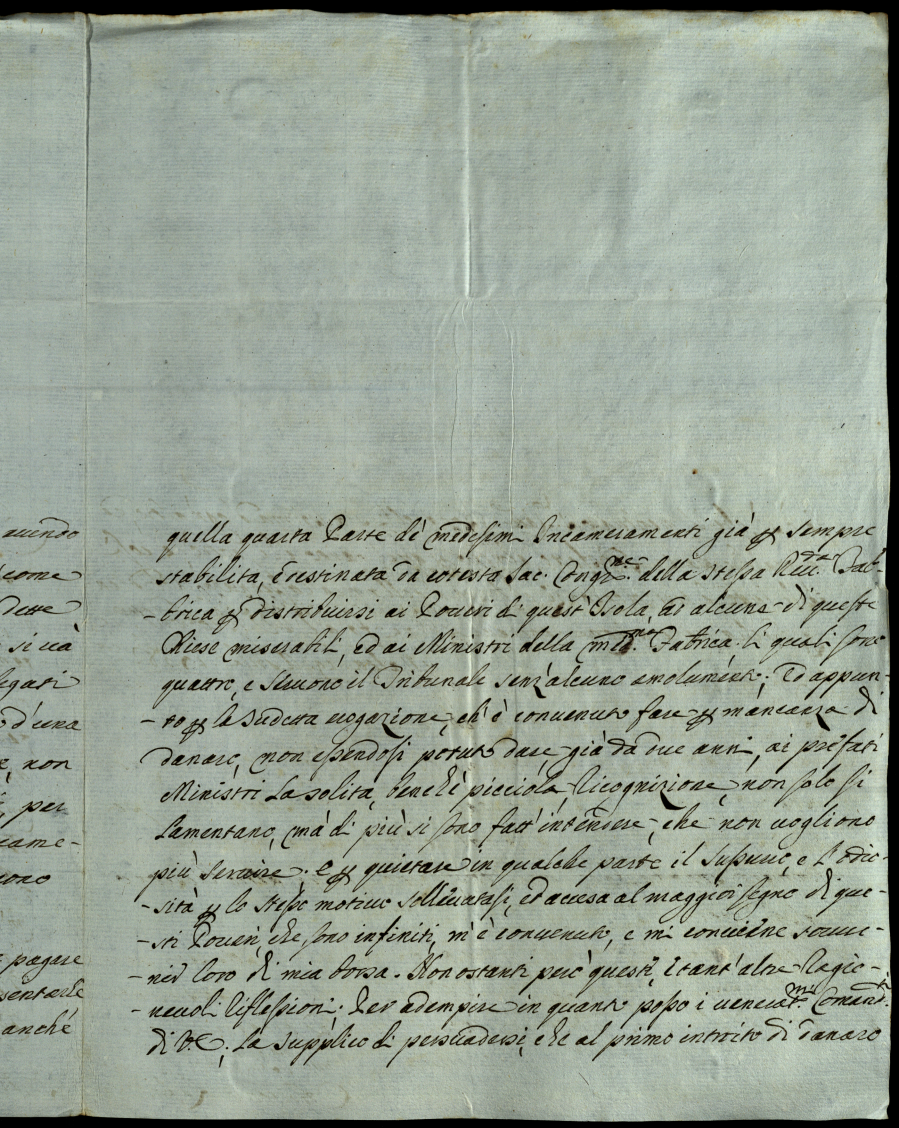 auendo
come
dette
si uà
egati
d'una
non
per
came-
ono
pagare
sentarle
anché
quella quarta Parte dè medesimi Incameramenti già p sempre
stabilita, e destinata da cotesta Sac. Congne della stessa Reuda Fab-
-brica p distribuirsi ai Poueri di quest'Isola, ad alcune di queste
Chiese miserabili, ed ai Ministri della medma Fabrica li quali sono
quattro, e seruono il Tribunale senz'alcuno emolumento; Ed appun-
-to p la sudetta erogazione, ch'è conuenuto fare p mancanza di
danaro, non essendosi potuto dare, già da due anni, ai prefati
Ministri la solita, benchè picciola Ricognizione, non solo si
lamentano, mà di più si sono fatt'intendere, che non uogliono
più seruire. e p quietare in qualche parte il susurro, e l'odio-
-sità p lo stesso motiuo solleuatasi, ed accesa al maggior segno di que-
-sti Poueri, che sono infiniti, m'è conuenuto, e mi conuiene souue-
-nir loro di mia borsa. Nonostanti però questi, e tant'altre Ragio-
-neuoli riflessioni; Per adempire in quanto posso i ueneratmi Comandi
di V.E.; La supplico di persuadersi, che al primo introito di danaro